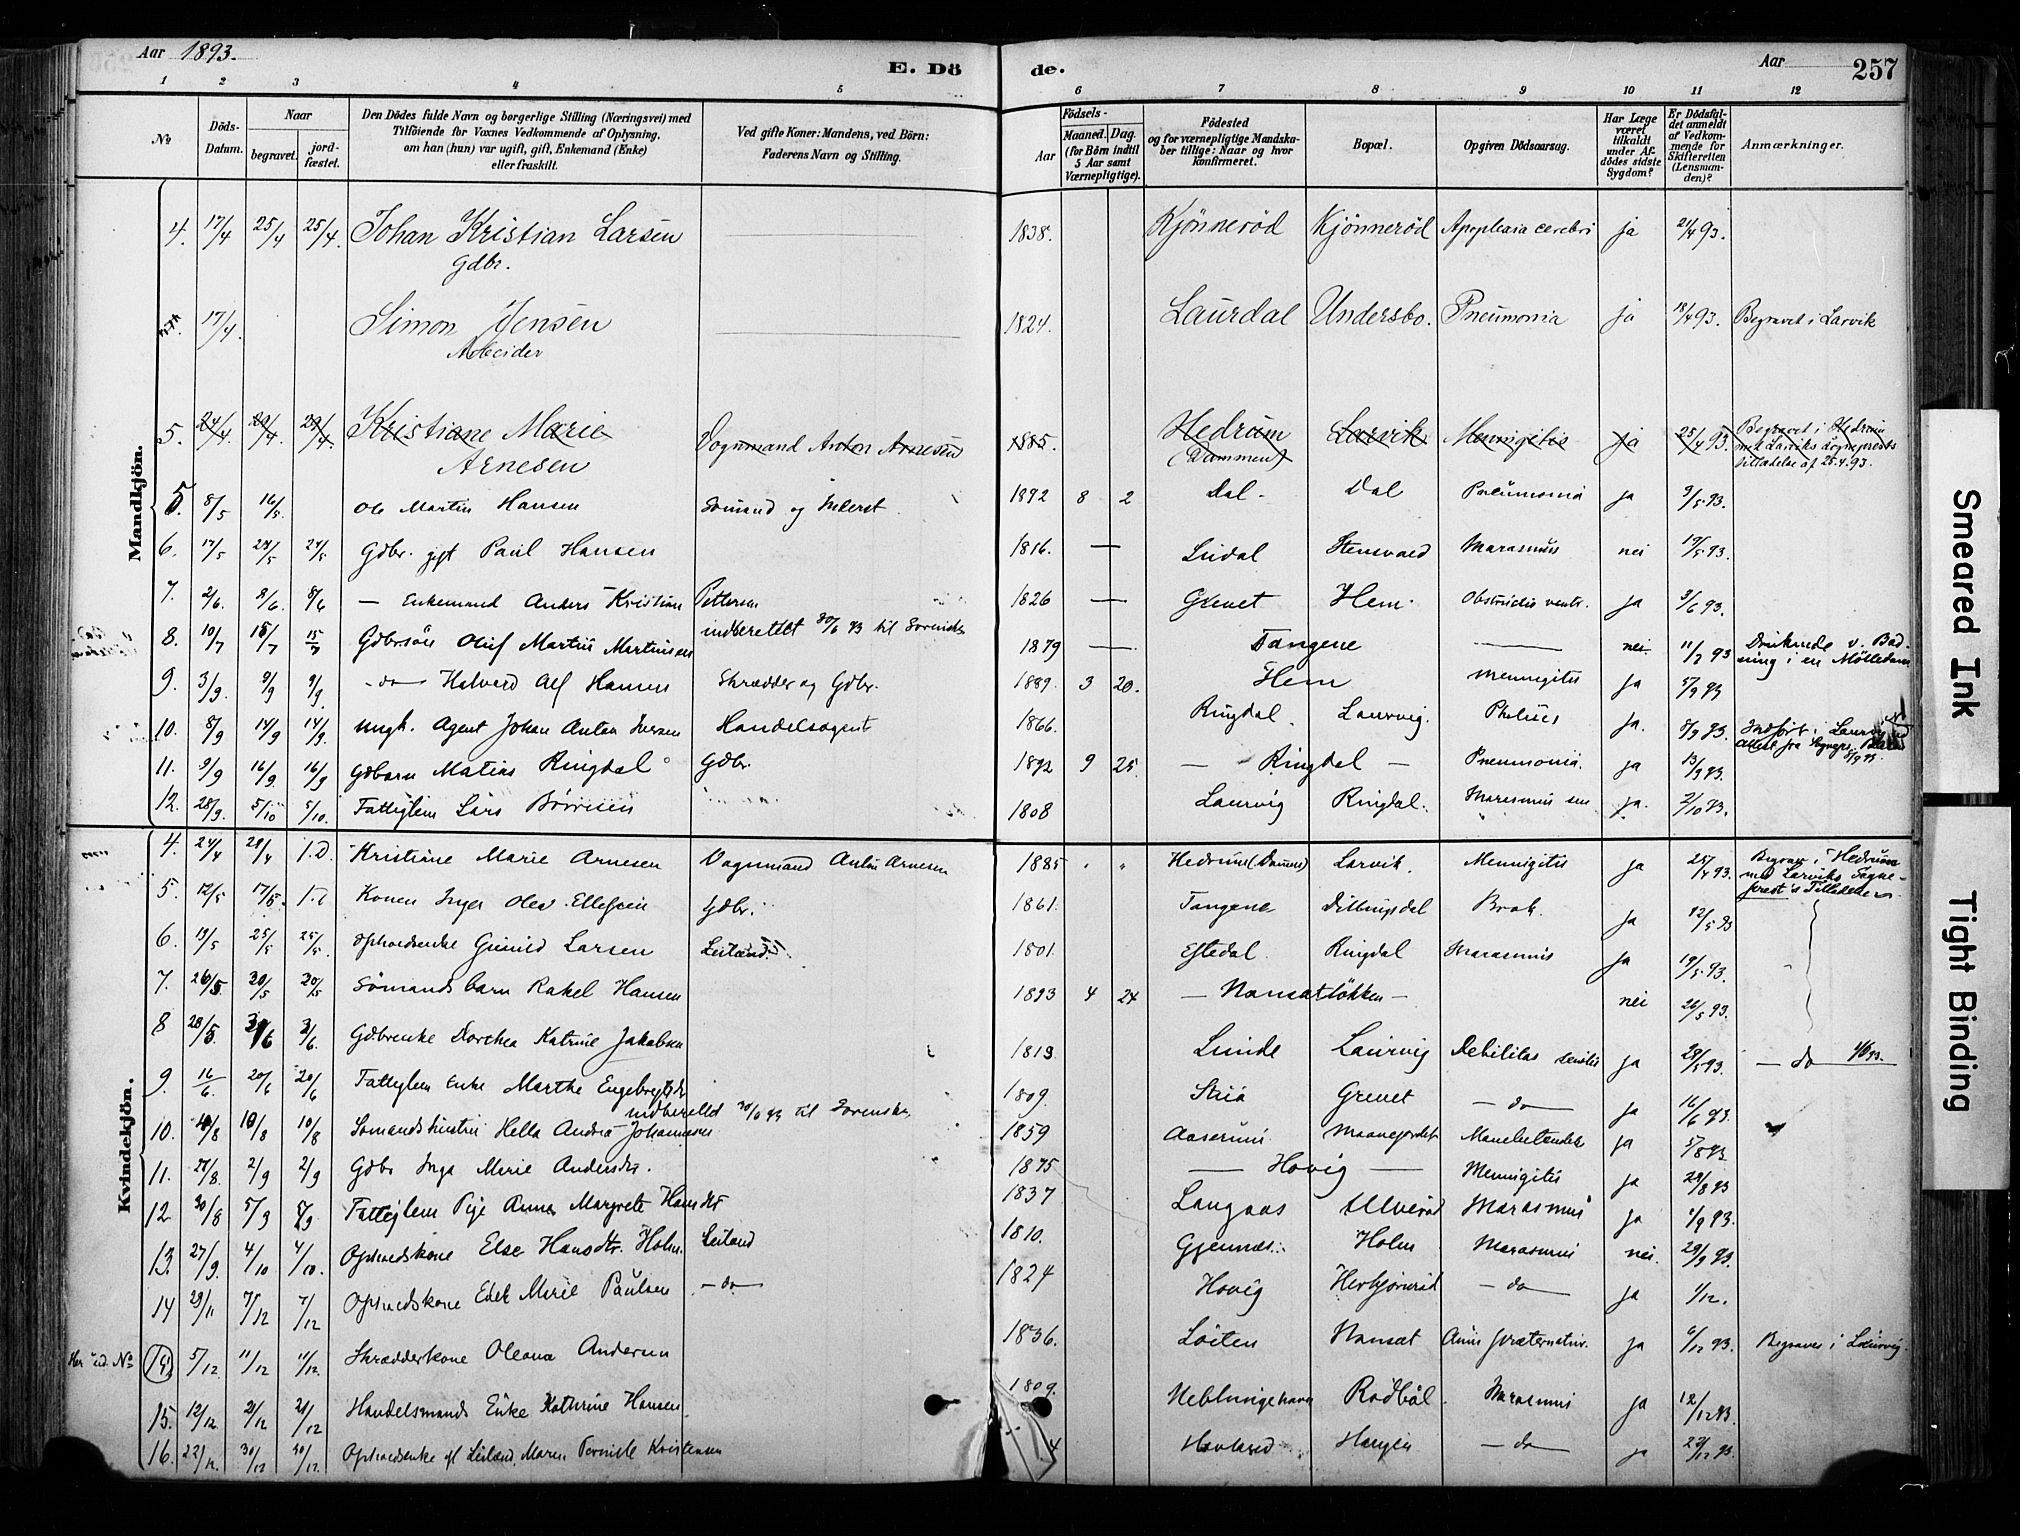 Aar 1893.
E. Dö
de.
Aar
257
1 2 3 4 5 6 7 8 9 10 11 12
No
Döds-Datum.
Naar
begravet.
jord-fæstet.
Den Dödes fulde Navn og borgerlige Stilling (Næringsvei) med
Tilföiende for Voxnes Vedkommende af Oplysning,
om han (hun) var ugift, gift, Enkemand (Enke)
eller fraskilt.
Ved gifte Koner: Mandens, ved Börn:
Faderens Navn og Stilling.
Födsels-
Aar
Maaned. Dag.
(for Börn indtil
5 Aar samt
Værnepligtige).
Födested
og for værnepligtige Mandska-
ber tillige: Naar og hvor
konfirmeret.
Bopæl.
Opgiven Dödsaarsag.
Har Læge
været
tilkaldt
under Af-
dödes sidste
Sygdom?
Er Dödsfal-
det anmeldt
af Vedkom-
mende for
Skifteretten
(Lensman-
den)?
Anmærkninger.
Mandkjön.
4. 17/4 25/4 25/4. Johan Kristian Larsen 1838. Kjönneröd Kjönneröd Apoplexia cerebri ja 21/4 93.
Gdbr.
17/4. Simon Jensen 1824. Laurdal Undersbo. Pneumonia ja 18/4 93. Begravet i Larvik
Arbeider
5. 24/4 29/4. 29/4. Kristiane Marie Vognmand Anton Arnesen 1885. Hedrum Larvik Meningitis ja 25/4 93. Begravet i Hedrum
Arnesen (Dammen) med Larviks Sogneprests
tilladelse af 25.4.93.
5. 8/5 16/5. Ole Martin Hansen Sömand og Inderst 1892 8 2 Dal Dal Pneumonia ja 9/5 93.
6. 17/5 24/5 24/5 Gdbr. gift Paul Hansen 1816. — Stensvard Marasmus nei 17/5 93.
7. 2/6. 8/6. 8/6 — Enkemand Anders Kristian Pettersen 1826 — Grevet Hem. ja 3/6 93.
indberettet 30/6 93 til
8. 10/7 15/7 15/7 Gdbrsön Oluf Martin Martinsen 1879 — Tangene — nei. 11/7 93 Druknede v. Bad-
ning i en Mölledam
9. 3/9. 9/9 9/9. — do — Halvord Alf Hansen Skrædder og Gdbr. 1889. 3 20. Hem Meningitis ja 5/9 93
10. 8/9 14/9 14/9. ungk. Agent Johan Anton Iversen Handelsagent 1866. Ringdal. Laurvig. Phtisis ja. 8/9 93.
11. 9/9 16/9. 16/9 Gdbarn Matias Ringdal Gdbr. 1892 9 25. — Ringdal — Pneumonia. ja 13/9 93.
12. 28/9. 5/10 5/10. Fattiglem Lars 1808 Laurvig Ringdal. Marasmus sen ja. 2/10 93.
Kvindekjön.
4. 24/4 29/4 J.D. Kristine Marie Arnesen Vognmand Anton Arnesen 1885 " " Hedrum (Dammen) Larvik. Meningitis ja 25/4 93. Begraves i Hedrum
med Larviks Sogne-
prest's Tilladelse
5. 12/5 17/5. Konen Inger Olea Ellefsen Gdbr. 1861. Tangene ja 12/5 93
6. 19/5 25/5 25/5. Opholdsenke Gunild Larsen Leiland. 1801. Eftedal Ringdal Marasmus ja 19/5 93.
7. 26/5. 30/5 30/5 Sömandsbarn Rakel Hansen 1893 4 24 — Nansætlökken — nei 26/5 93.
8 28/5. 3/6 3/6. Gdbrenke Dorthea Katrine Jakobsen 1819. Lunde Laurvig Debilitas senilis ja 29/5 93. — do
9. 16/6. 20/6 20/6 Fattiglem Enke Marthe Engebregtsdr 1809. Grevet — do — ja 16/6 93.
indberettet 30/6 93 til
10. 4/8 10/8 10/8 Sömandshustru Hella Andrea Johannesen 1859 Aaserum ja 5/8 93.
11. 28/8. 2/9 2/9 Gdbr Inga Marie Andersdr. 1875 — Hovig — Meningitis ja 29/8 93
12 30/8 5/9 5/9 Fattiglem Pige Anne Margrete Hansdr 1837 Langaas Marasmus ja 1/9 93.
13. 27/9. 4/10 4/10. Opholdskone Else Hansdtr. Holm Leiland 1810. Gjennæs. Holm Marasmus nei. 29/9 93.
14 29/11 7/12 7/12 Opholdskone Marie Paulsen — do — 1824 Hovig — do — ja 1/12.
14 5/12. 11/12 11/12. Skrædderkone Oleana Andersen 1836. Löiten Nansæt ja 6/12 93. Begraves i Laurvig.
15. 12/12. 21/12 21/12 Handelsmands Enke Kathrine Hansen. 1809. Neblungehavn Rödböl Marasmus ja 12/12 93.
16. 22/12. 30/12 30/12. Opholdsenke af Leiland. Maren Kristensen — do — ja 23/12 93.
Smeared Ink
Tight Binding